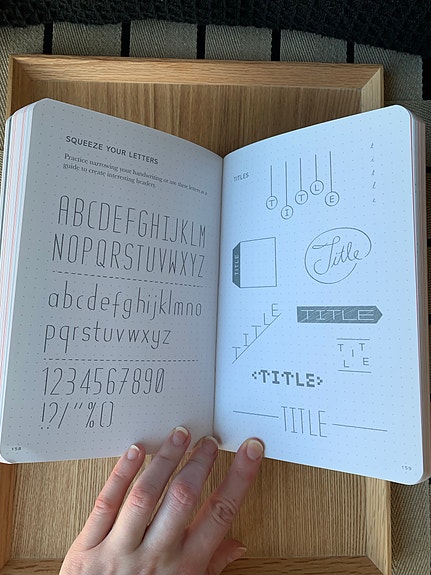 SQUEEZE YOUR LETTERS
Practice narrowing your handwriting or use these letters as a
guide to create interesting headers.
ABCDEFGHIJKLM
NOPQRSTUVWXYZ
abcdefghijklmno
pqrstuvwxyz
1234567890
!?/"%()
158
TITLES
TITLE
t
i
t
l
e
TITLE
Title
TITLE
TITLE
TITLE
TITLE
TITLE
159